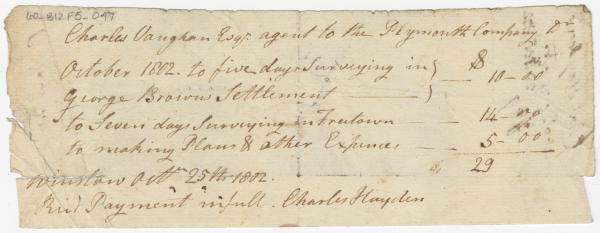 60-B12F5-097
Charles Vaughan Esqr. agent to the Plymouth Company Dr
October 1802. to five days Surveying in } $
George Browns Settlement } 10-00
to Seven days Surveying in Freetown — 14-00
to making Plans & other Expences — 5-00
29
Winslow Octr. 25th 1802.
Recd Payment in full. Charles Hayden